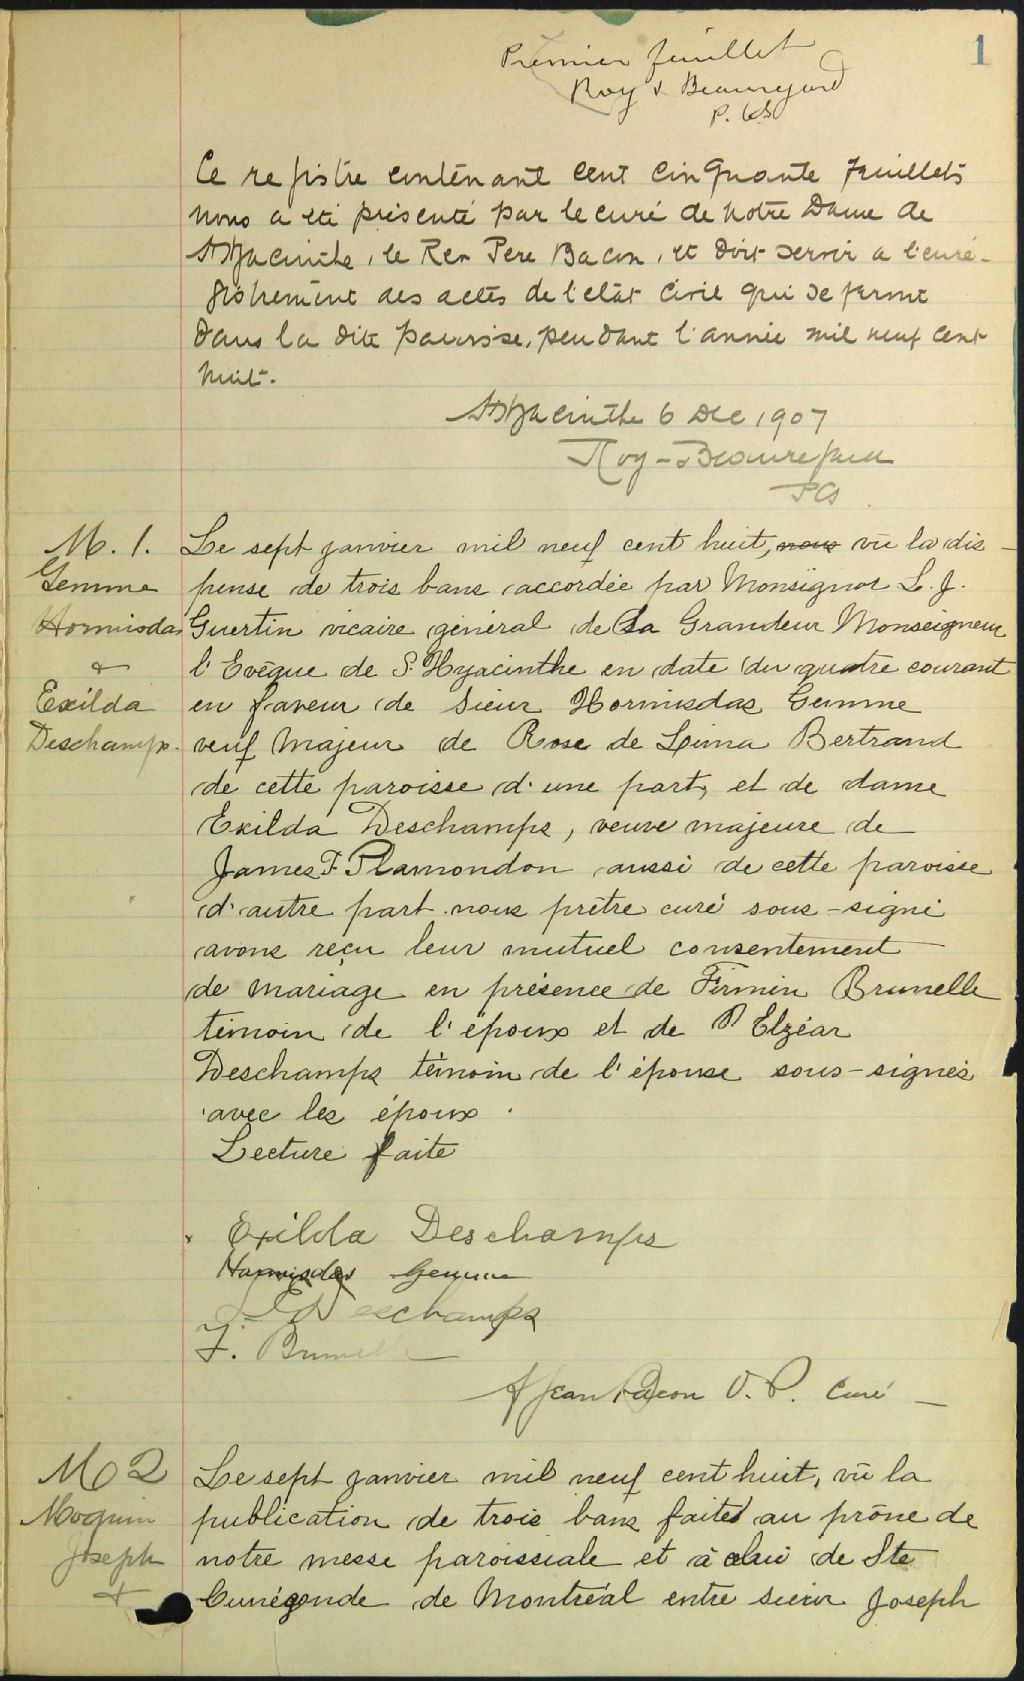 1
Premier feuillet
Roy & Beauregard
P. C. S.
Ce registre contenant cent cinquante feuillets
nous a été présenté par le curé de Notre Dame de
St Hyacinthe, le Rev Père Bacon, et doit servir a l'enré-
gistrement des actes de l'état civil qui se feront
dans la dite paroisse, pendant l'année mil neuf cent
huit.
St Hyacinthe 6 Dec 1907
Roy & Beauregard
PCS
M. 1.
Gemme
Hormisdas
&
Exilda
Deschamps.
Le sept janvier mil neuf cent huit, nous vû la dis-
pense de trois bans accordée par Monsignor L. J.
Guertin vicaire général de Sa Grandeur Monseigneur
l'Evêque de S. Hyacinthe en date du quatre courant
en faveur de Sieur Hormisdas Gemme
veuf majeur de Rose de Lima Bertrand
de cette paroisse d'une part, et de dame
Exilda Deschamps, veuve majeure de
James F. Plamondon aussi de cette paroisse
d'autre part nous prêtre curé sous-signé
avons reçu leur mutuel consentement
de mariage en présence de Firmin Brunelle
témoin de l'époux et de P Elzéar
Deschamps témoin de l'épouse sous-signés
avec les époux.
Lecture faite
Exilda Deschamps
Hormisdas Gemme
Deschamps
F. Brunelle
fr Jean Bacon O. P. Curé
M 2
Moquin
Joseph
&
Le sept janvier mil neuf cent huit, vû la
publication de trois bans faites au prône de
notre messe paroissiale et à celui de Ste
Cunégonde de Montréal entre sieur Joseph